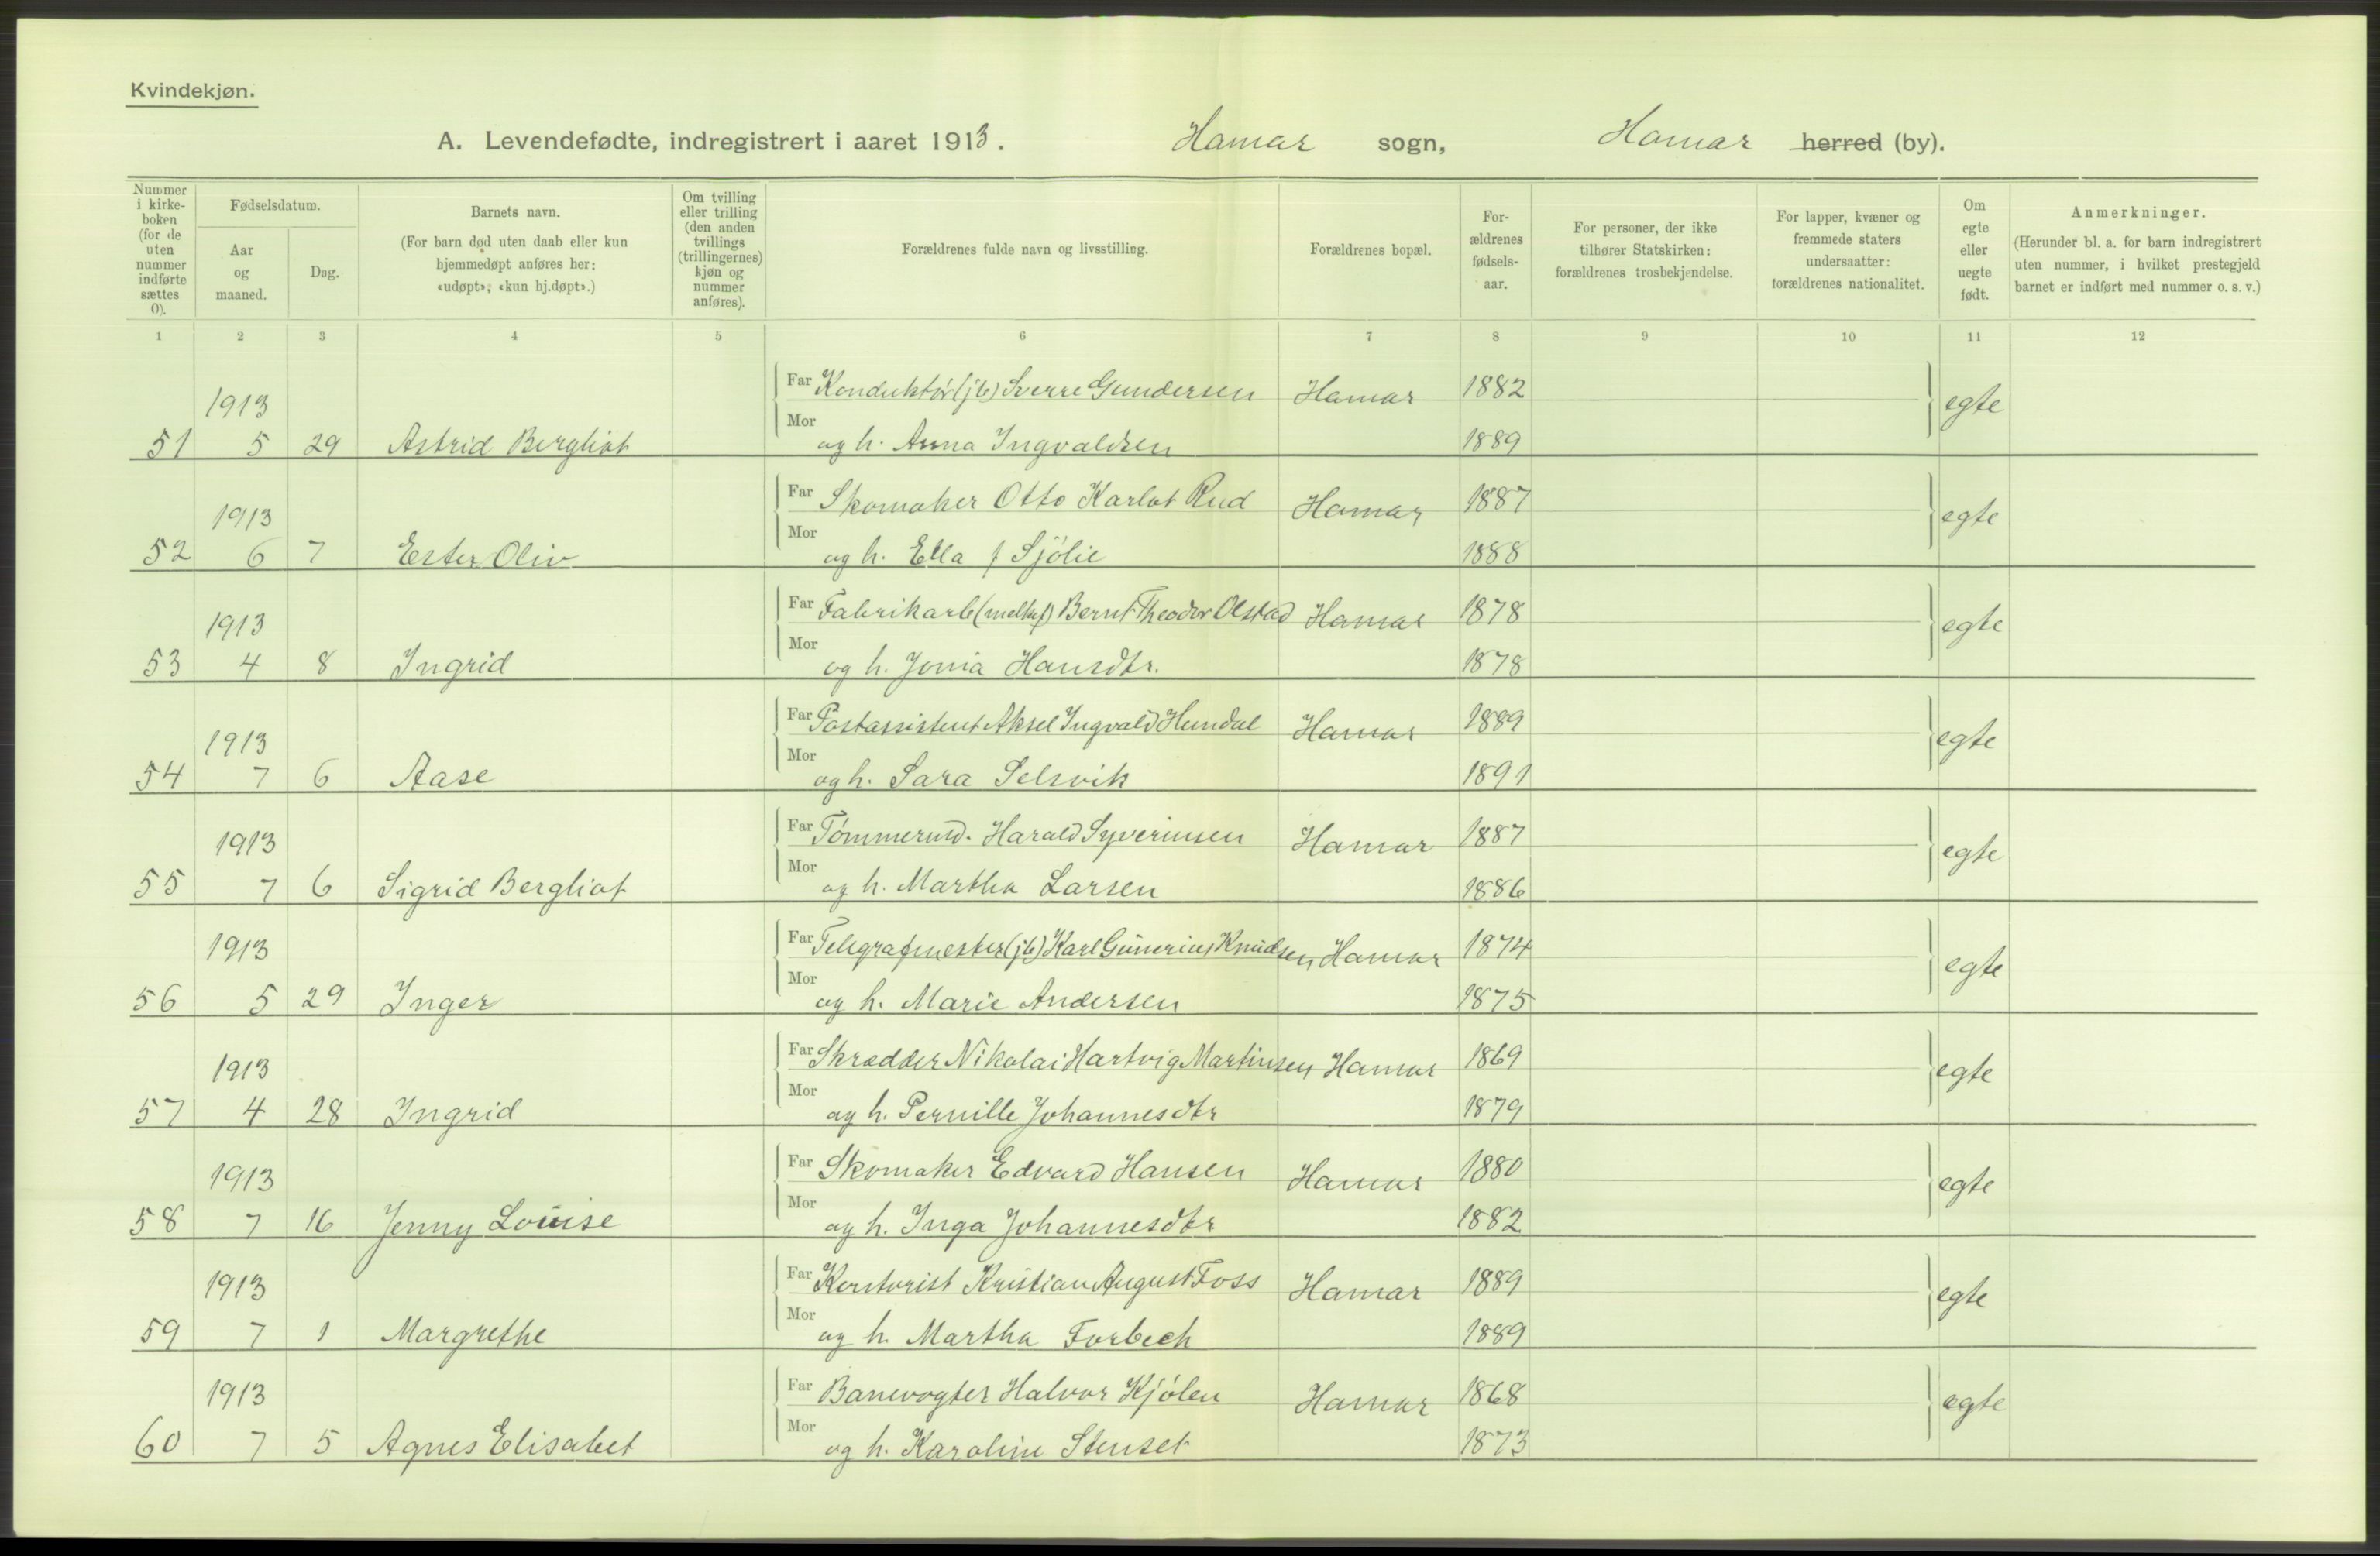 Kvindekjøn.
A. Levendefødte, indregistrert i aaret 1913. Hamar sogn, Hamar herred (by).
Nummer i kirke-boken (for de uten nummer indførte sættes 0).
Fødselsdatum.
Aar og maaned.
Dag.
Barnets navn.
(For barn død uten daab eller kun hjemmedøpt anføres her: «udøpt», «kun hj.døpt».)
Om tvilling eller trilling (den anden tvillings (trillingernes) kjøn og nummer anføres).
Forældrenes fulde navn og livsstilling.
Forældrenes bopæl.
For-ældrenes fødsels-aar.
For personer, der ikke tilhører Statskirken: forældrenes trosbekjendelse.
For lapper, kvæner og fremmede staters undersaatter: forældrenes nationalitet.
Om egte eller uegte født.
Anmerkninger.
(Herunder bl. a. for barn indregistrert uten nummer, i hvilket prestegjeld barnet er indført med nummer o. s. v.)
1 2 3 4 5 6 7 8 9 10 11 12
1913 Far Konduktør (jb) Sverre Gundersen Hamar 1882 egte
51 5 29 Astrid Bergliot Mor og h. Anna Ingvaldsen 1889
1913 Far Skomaker Otto Karlot Rud Hamar 1887 egte
52 6 7 Ester Oliv Mor og h. Ella f Sjölie 1888
1913 Far Fabrikarb Bernt Theodor Olstad Hamar 1878 egte
53 4 8 Ingrid Mor og h. Jonia Hansdtr. 1878
1913 Far Postassistent Aksel Ingvald Hundal Hamar 1889 egte
54 7 6 Aase Mor og h. Sara Selsvik 1891
1913 Far Tömmerm. Harald Syverinsen Hamar 1887 egte
55 7 6 Sigrid Bergliot Mor og h. Martha Larsen 1886
1913 Far Telegrafmester (jb) Karl Gunerius Knudsen Hamar 1874 egte
56 5 29 Inger Mor og h. Marie Andersen 1875
1913 Far Skrædder Nikolai Hartvig Martinsen Hamar 1869 egte
57 4 28 Ingrid Mor og h. Pernille Johannesdtr 1879
1913 Far Skomaker Edvard Hansen Hamar 1880 egte
58 7 16 Jenny Louise Mor og h. Inga Johannesdtr 1882
1913 Far Kontorist Kristian August Foss Hamar 1889 egte
59 7 1 Margrethe Mor og h. Martha Forbech 1889
1913 Far Banevogter Halvor Kjölen Hamar 1868 egte
60 7 5 Agnes Elisabet Mor og h. Karoline Stenset 1873